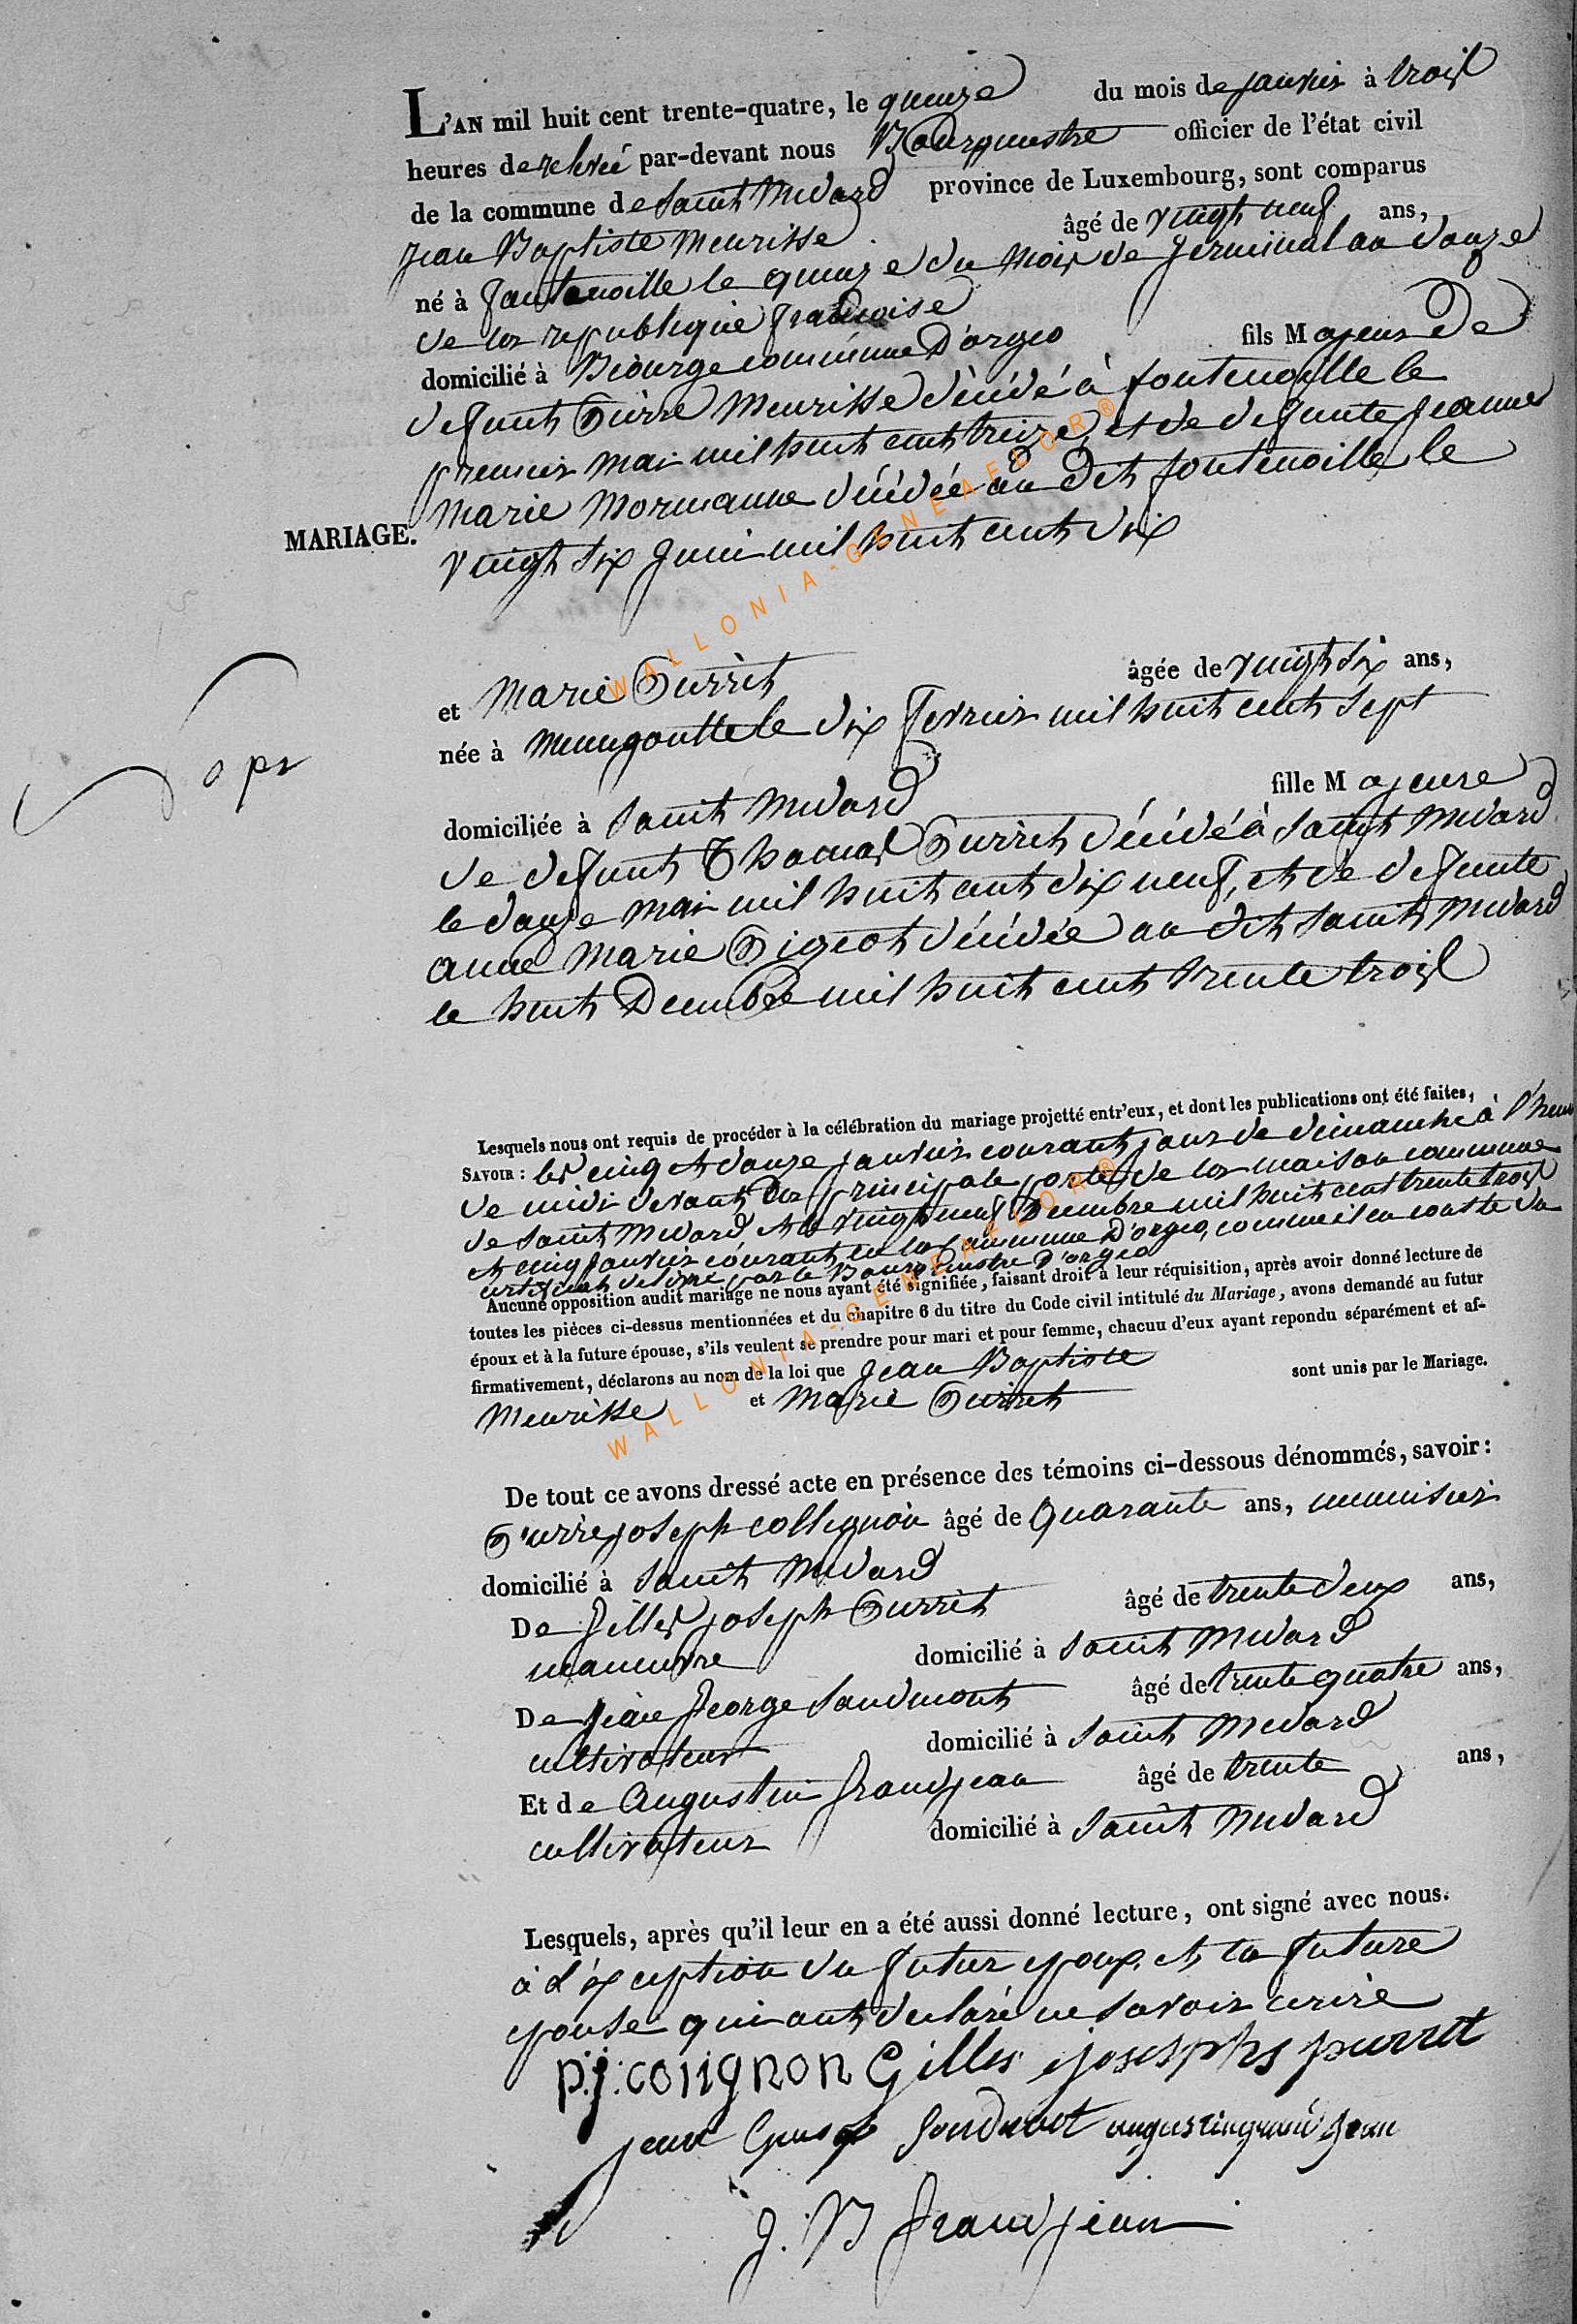 L'AN mil huit cent trente-quatre, le quinze du mois de janvier à trois
heures de relevé par-devant nous Bourguestre officier de l'état civil
de la commune de Saint Médard province de Luxembourg, sont comparus
Jean Baptiste Meurisse âgé de vingt neuf ans,
né à fontenoille le quinze du mois de germinal an douze
de la republique francoise
domicilié à Biourge commune D'orgeo fils Majeur De
defunt Pierre Meurisse décédé à fontenoille le
premier mai mil huit cent treize, et de defunte jeanne
marie Mormanne décédée au Dit fontenoille le
MARIAGE.
vingt six juin mil huit cent dix
et Marie Pierret âgée de vingt six ans,
née à Menugoutte le dix fevrier mil huit cent sept
o pr
domiciliée à Saint Médard fille Majeure
de defunt Thomas Pierret décédé à Saint Médard
le douze mai mil huit cent dix neuf, et de defunte
anne Marie Pigeot décédée au dit Saint Médard
le huit Decembre mil huit cent trente trois
Lesquels nous ont requis de procéder à la célébration du mariage projetté entr'eux, et dont les publications ont été faites,
SAVOIR : les cinq et douze janvier courant jour de dimanche à l'heure
de midi devant la principale porte de la maison commune
de Saint Médard et le vingt neuf Decembre mil huit cent trente trois
et cinq janvier courant en la commune D'orgeo, comme il en conste du
certificat delivré par le Bourguemestre D'orgeo
Aucune opposition audit mariage ne nous ayant été signifiée, faisant droit à leur réquisition, après avoir donné lecture de
toutes les pièces ci-dessus mentionnées et du chapitre 6 du titre du Code civil intitulé du Mariage, avons demandé au futur
époux et à la future épouse, s'ils veulent se prendre pour mari et pour femme, chacuu d'eux ayant repondu séparément et af-
firmativement, déclarons au nom de la loi que Jean Baptiste
Meurisse et Marie Pierret sont unis par le Mariage.
De tout ce avons dressé acte en présence des témoins ci-dessous dénommés, savoir :
Pierre joseph collignon âgé de Quarante ans, menuisier
domicilié à Saint Médard
De Gilles joseph Pierret âgé de trente deux ans,
manoeuvre domicilié à Saint Médard
De Jean George Saudmont âgé de trente quatre ans,
cultivateur domicilié à Saint Médard
Et de Augustin Grandjean âgé de trente ans,
cultivateur domicilié à Saint Médard
Lesquels, après qu'il leur en a été aussi donné lecture, ont signé avec nous.
à l'exception du futur epoux et la future
epouse qui ont declaré ne savoir ecrire
p.j. colignon Gilles josephs pierret
jean augustin grand jean
J. B Grandjean
WALLONIA-GENEAFLOR®
WALLONIA-GENEAFLOR®